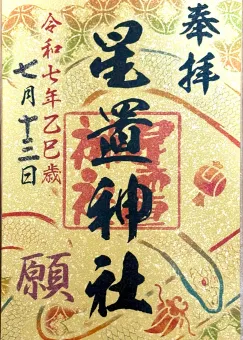 奉拝
星置神社
令和七年乙巳歳
七月十三日
願